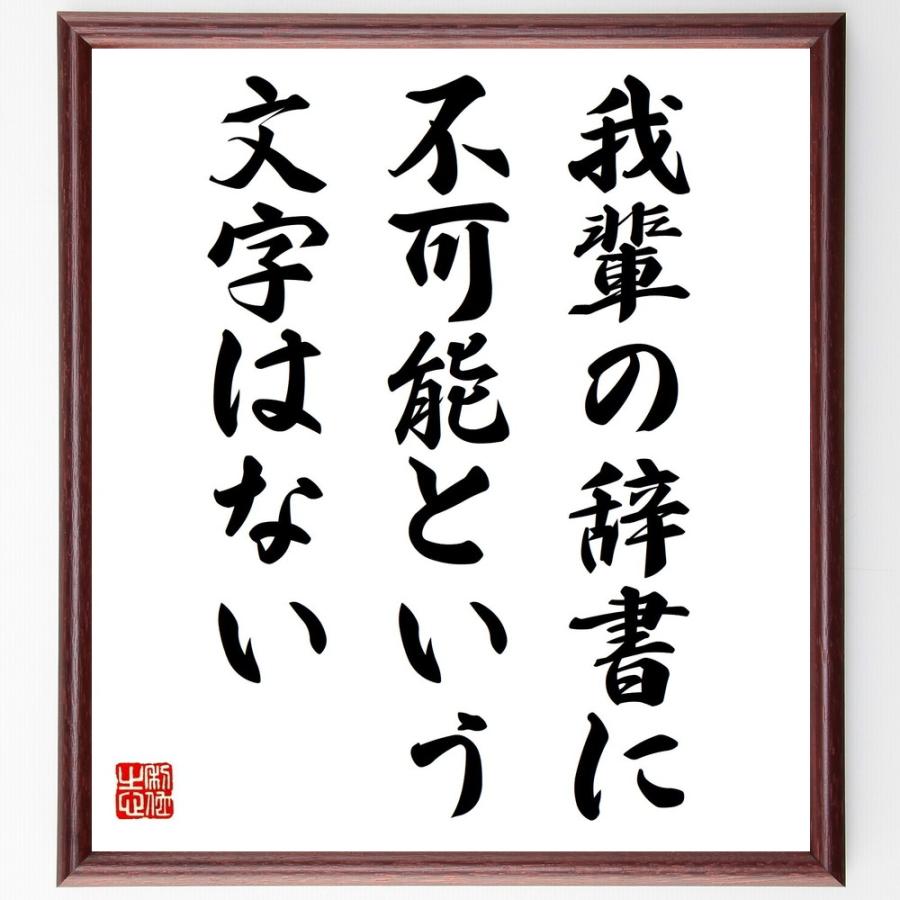 我輩の辞書に
不可能という
文字はない